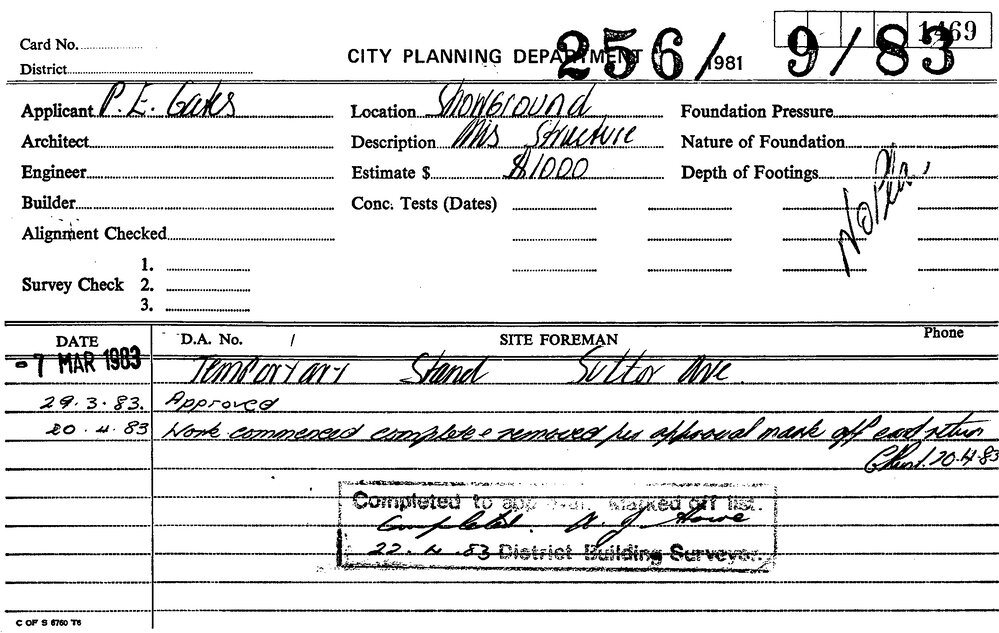 1469
Card No.
CITY PLANNING DEPARTMENT 256/1981 9/83
District
Applicant P. E. Gates Location Showground Foundation Pressure
Architect Description Mis Structure Nature of Foundation
Engineer Estimate $ $1000 Depth of Footings
Builder Conc. Tests (Dates)
No Plan
Alignment Checked
1.
Survey Check 2.
3.
DATE D.A. No. / SITE FOREMAN Phone
-7 MAR 1983 Temporary Stand Suttor Ave.
29.3.83. Approved
20.4.83 Work commenced complete & removed per approval mark off card return
20.4.83
Completed to approval. Marked off list.
Completed.
22.4.83 District Building Surveyor.
C OF S 6760 T6